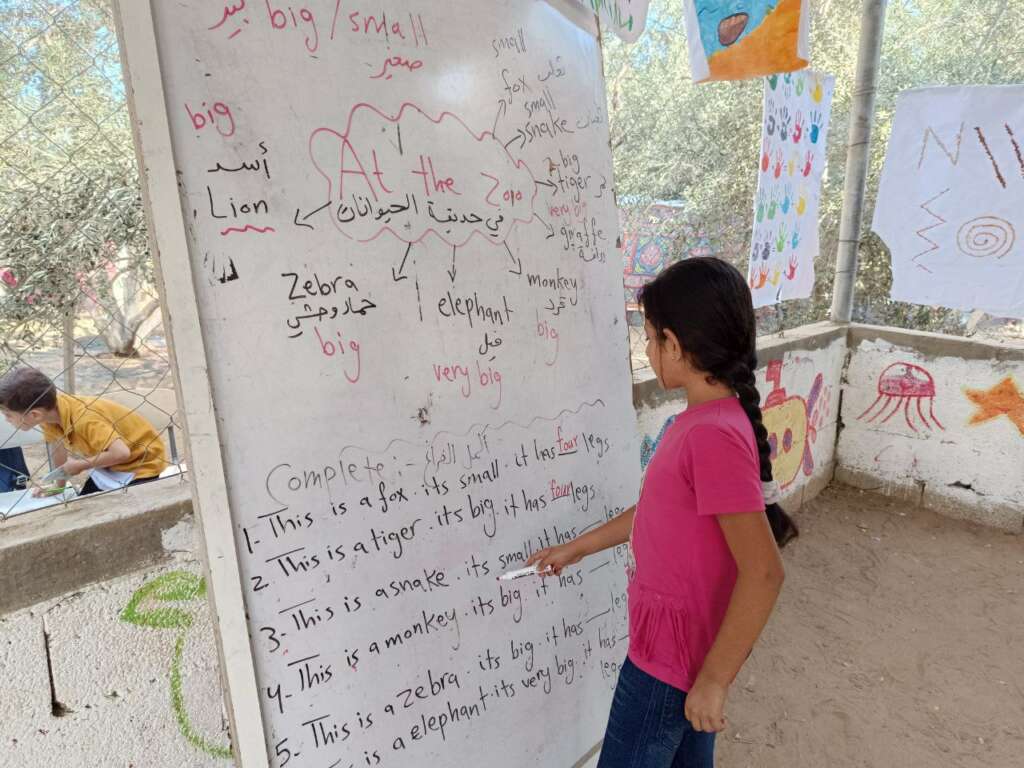 big / small كبير
صغير
big
أسد
Lion
small
fox ثعلب
small
snake ثعبان
big
tiger نمر
very big
giraffe
زرافة
At the Zoo
في حديقة الحيوانات
Zebra
حمار وحشي
big
elephant
فيل
very big
monkey
قرد
big
Complete :- أكمل الفراغ
1- This is a fox . its small . it has four legs
2- This is a tiger . its big . it has four legs
3- This is a snake . its small it has legs
4- This is a monkey . its big . it has legs
5- This is a zebra . its big . it has legs
is a elephant . its very big . it has legs